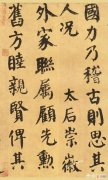 國力乃稽古則思其
人况　太后崇徽
外家聯屬顧勲
舊方睦親賢俾其